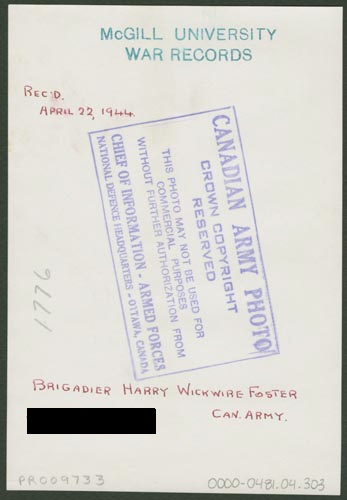 McGILL UNIVERSITY
WAR RECORDS
REC'D.
APRIL 22, 1944.
CANADIAN ARMY PHOTO
CROWN COPYRIGHT
RESERVED
THIS PHOTO MAY NOT BE USED FOR
COMMERCIAL PURPOSES
WITHOUT FURTHER AUTHORIZATION FROM
CHIEF OF INFORMATION - ARMED FORCES
NATIONAL DEFENCE HEADQUARTERS - OTTAWA, CANADA
1776
BRIGADIER HARRY WICKWIRE FOSTER
CAN. ARMY.
PR009733
0000-0481.04.303